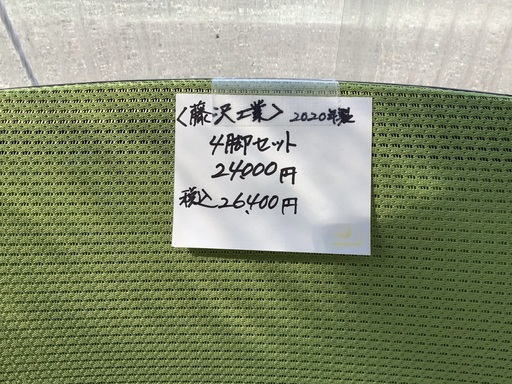 〈藤沢工業〉 2020年製
4脚セット
24,000円
税込 26,400円